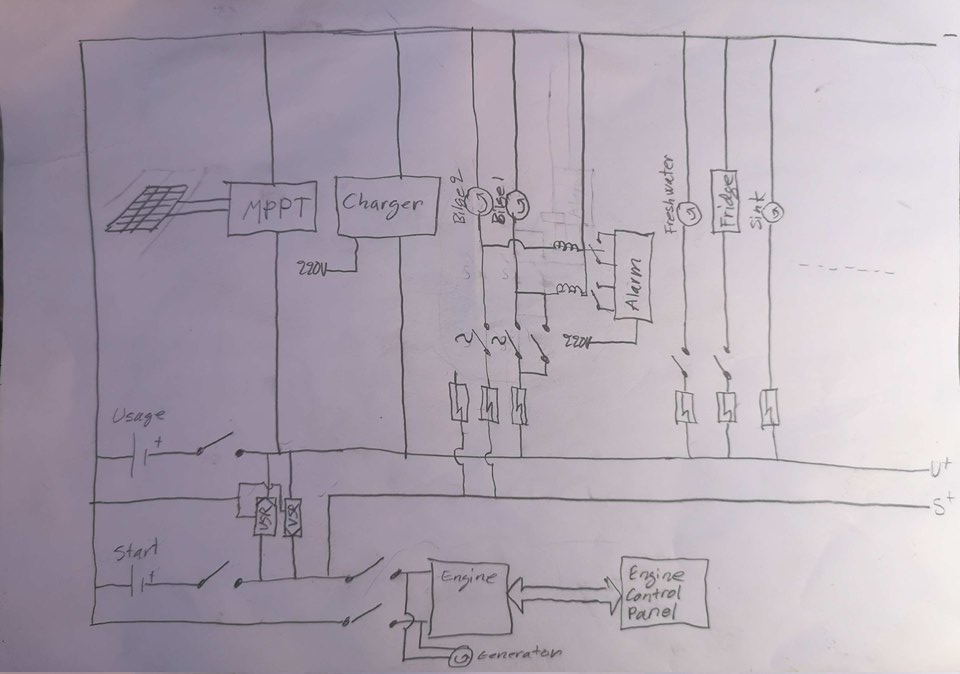 -
MPPT
Charger
220V
Bilge 2
Bilge 1
Alarm
220V
Freshwater
Fridge
Sink
Usage
+
U+
VSR
VSR
S+
Start
+
Engine
Engine
Control
Panel
Generator